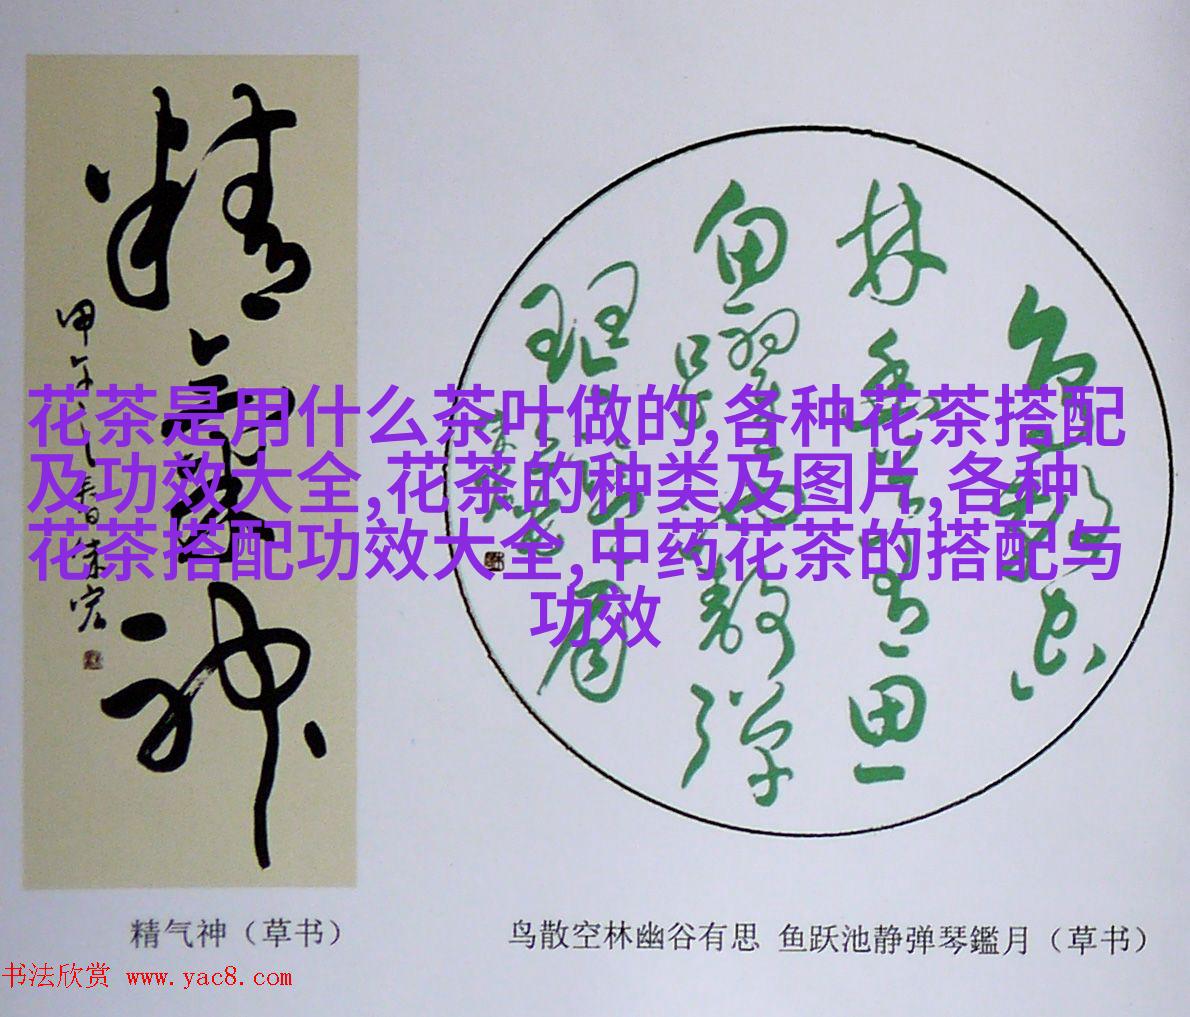 精氣神
甲午之春日朱宏
花茶是用什么茶叶做的,各种花茶搭配
及功效大全,花茶的种类及图片,各种
花茶搭配功效大全,中药花茶的搭配与
功效
精气神（草书）
鸟散空林幽谷有思 鱼跃池静弹琴鑑月（草书）
书法欣赏 www.yac8.com